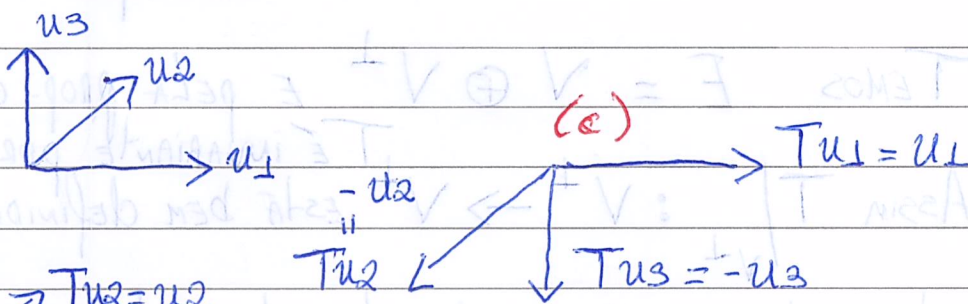 u3
u2
u1
(c)
Tu1 = u1
-u2
"
Tu2
Tu3 = -u3
Tu2 = u2